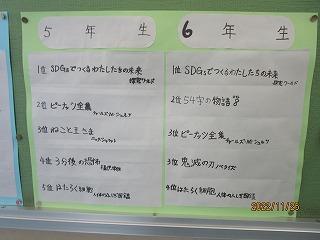 5 年 生
1位 SDGsでつくるわたしたちの未来
探究ワールド
2位 ピーナッツ全集
チャールズ・M・シュルツ
3位 ねこと王さま
4位 3分後の恐怖
5位 はたらく細胞
6 年 生
1位 SDGsでつくるわたしたちの未来
探究ワールド
2位 54字の物語
3位 ピーナッツ全集
チャールズ・M・シュルツ
3位 鬼滅の刃 ノベライズ
4位 はたらく細胞 人体のふしぎ図鑑
2022/11/25